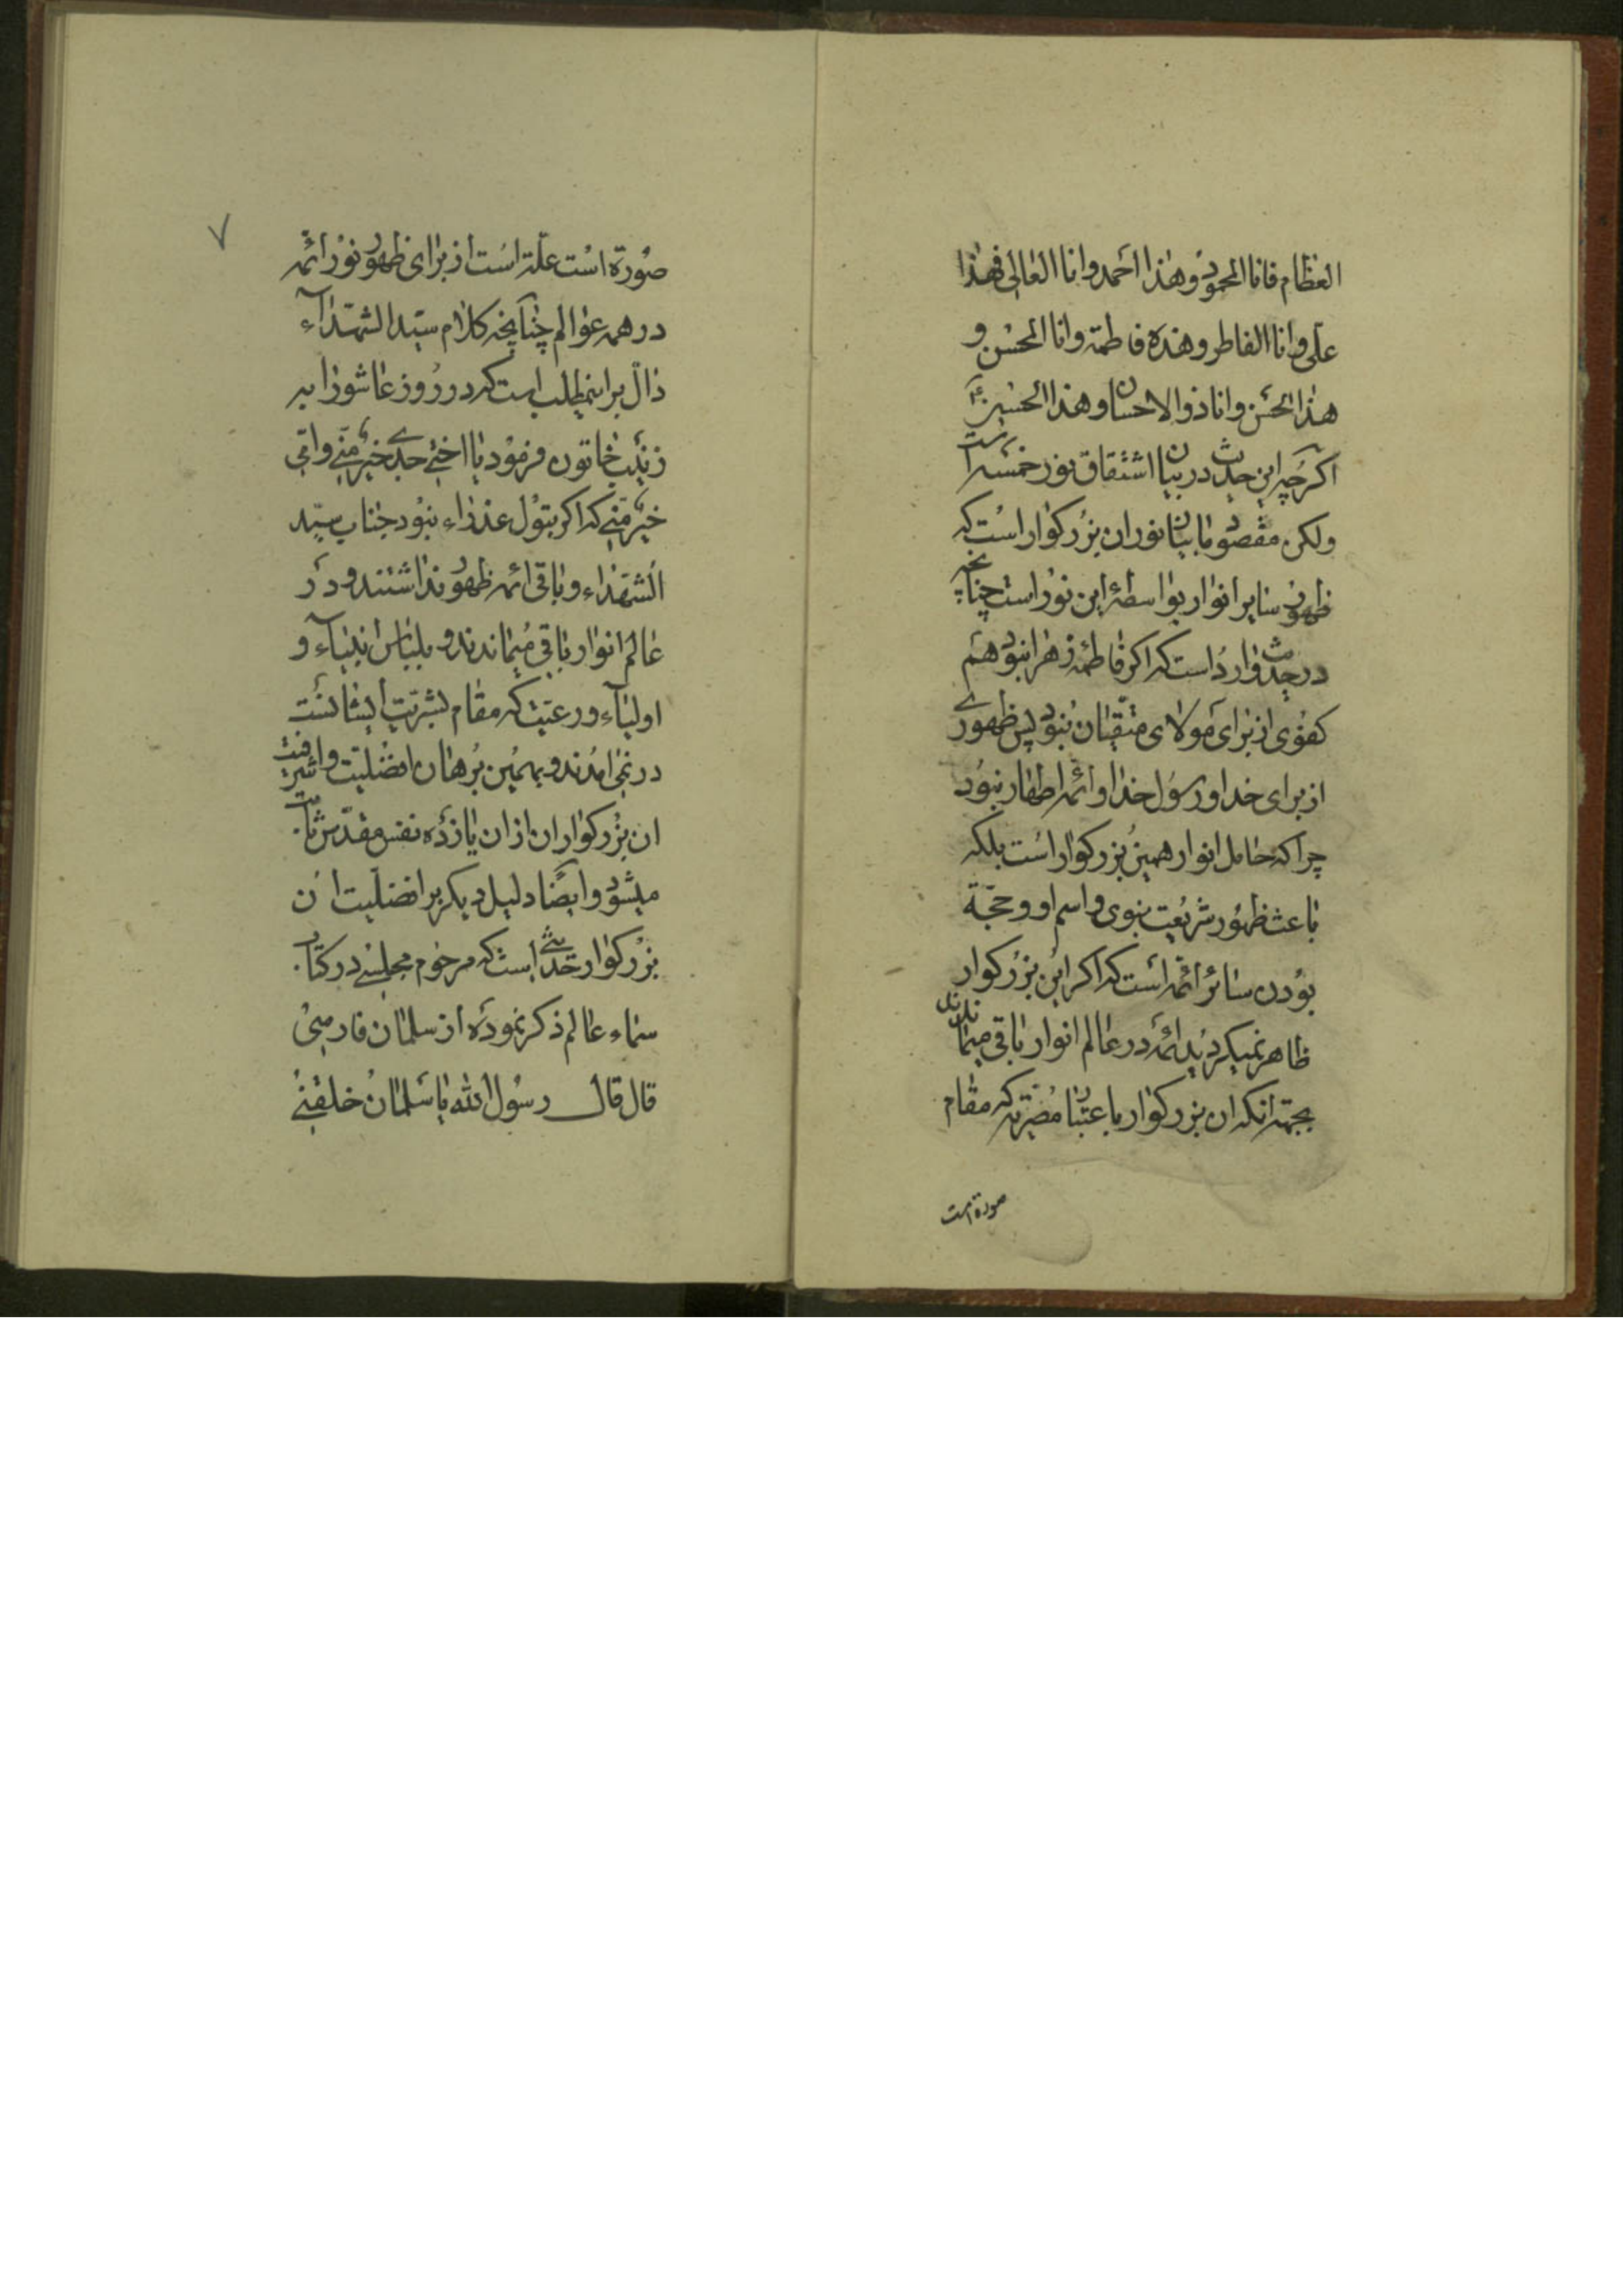 العظام فانا المحمود و هذا احمد وانا العالی فهذا
علی وانا الفاطر وهذه فاطمة وانا المحسن و
هذا الحسن وانا ذو الاحسان وهذا الحسین
اکرچه این حدیث در بیان اشتقاق نور خمسه است
ولکن مقصود ما بیان نور ان بزرکوار است که
ظهور سایر انوار بواسطهٔ این نور است چنانچه
در حدیث وارد است که اکر فاطمهٔ زهرا نبود هم
کفوی از برای مولای متقیان نبود پس ظهوری
از برای خدا و رسول خدا و ائمه اطهار نبود
چرا که حامل انوار همین بزرکوار است بلکه
باعث ظهور شریعت نبوی و اسم او و حجّة
بودن سائر ائمّه است که اکر این بزرکوار
ظاهر نمیکردید ائمه در عالم انوار باقی میماندند
بجهته انکه ان بزرکوار باعتبار مضریه که مقام
صورة است
۷
صورة است علّة است از برای ظهور نور ائمّه
در همه عوالم چنانچه کلام سیّد الشهدآء
دالّ بر اینمطلب است که در روز عاشورا به
زینب خاتون فرمود یا اختی جدی خیر منّی وامّی
خیر منّی که اکر بتول عذراء نبود جناب سیّد
الشهداء و باقی ائمه ظهور نداشتند و در
عالم انوار باقی میماندند و بلباس انبیآء و
اولیآء و رعیّت که مقام بشریّت ایشانست
در نمی امدند و بهمین برهان افضلیت و اشرفیت
ان بزرکواران از ان یازده نفس مقدّس ثابت
میشود و ایضًا دلیل دیکر بر افضلیت ان
بزرکوار حدیثی است که مرحوم مجلسی در کتاب
سماء عالم ذکر نموده از سلمان فارسیّ
قال قال رسول الله یا سلمان خلقنی